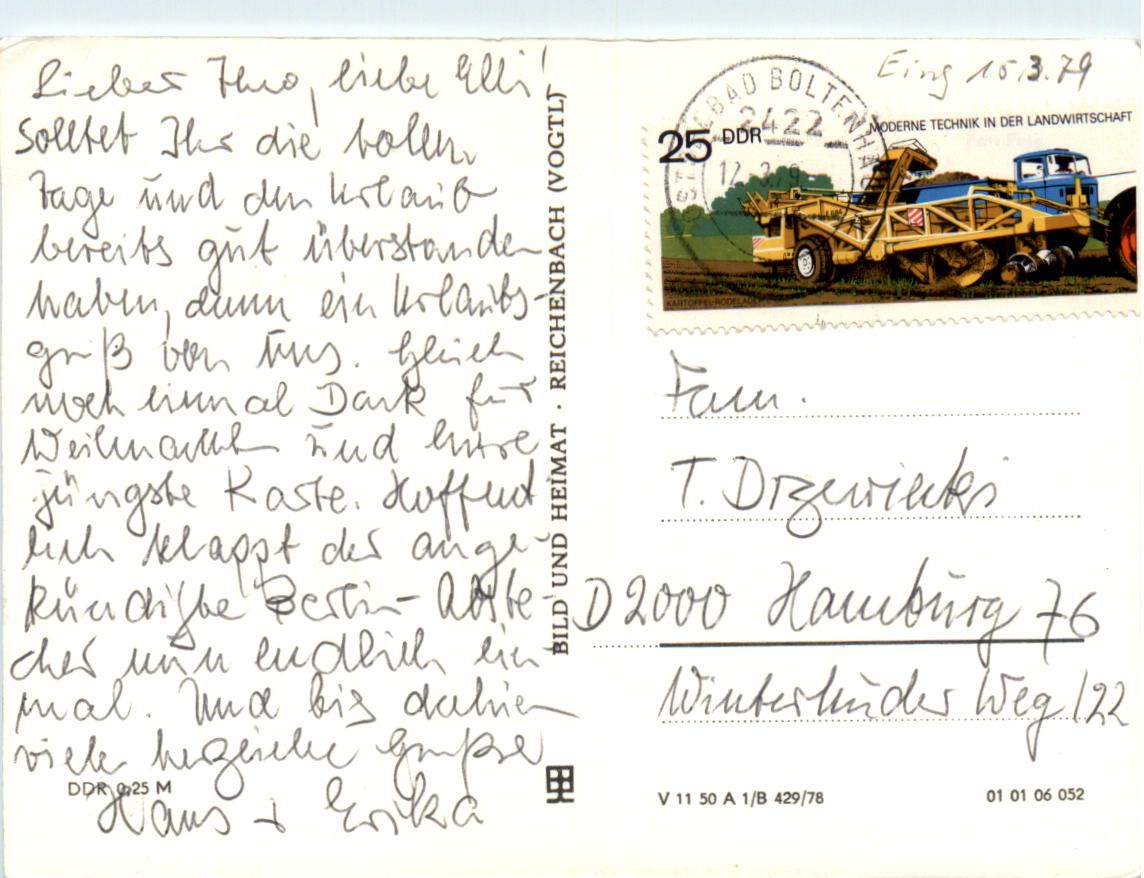 Lieber Theo, liebe Elli!
Solltet Ihr die tollen
Tage und den Urlaub
bereits gut überstanden
haben, dann ein Urlaubs-
gruß von uns. Gleich
noch einmal Dank für
Weihnachten und Eure
jüngste Karte. Hoffent
lich klappt der ange-
kündigte Berlin-Abste-
cher nun endlich ein
mal. Und bis dahin
viele herzliche Grüße
Hans + Erika
DDR 0,25 M
BILD UND HEIMAT · REICHENBACH (VOGTL)
Eing 15.3.79
BAD BOLTENH
2422
12.3.79
25 DDR
MODERNE TECHNIK IN DER LANDWIRTSCHAFT
KARTOFFEL-RODELADER
Fam.
T. Drzewiecki
D 2000 Hamburg 76
Winterhuder Weg 122
V 11 50 A 1/B 429/78
01 01 06 052